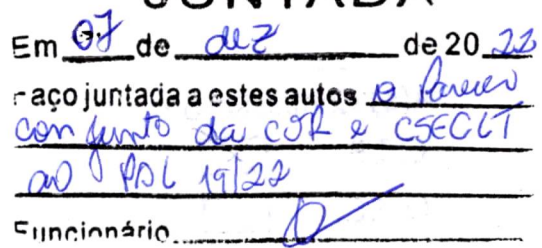 JUNTADA
Em 07 de dez de 20 22
Faço juntada a estes autos o Parecer
conjunto da CJR e CSECLT
ao PDL 19/22
Funcionário